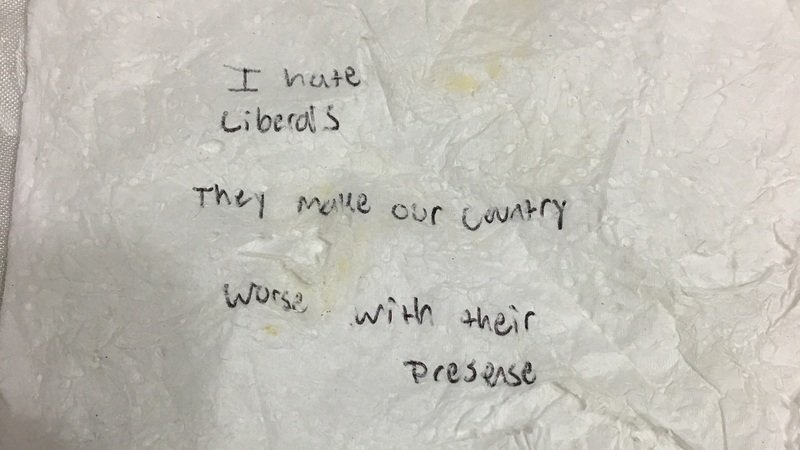 I hate
Liberals
They make our country
worse with their
presense